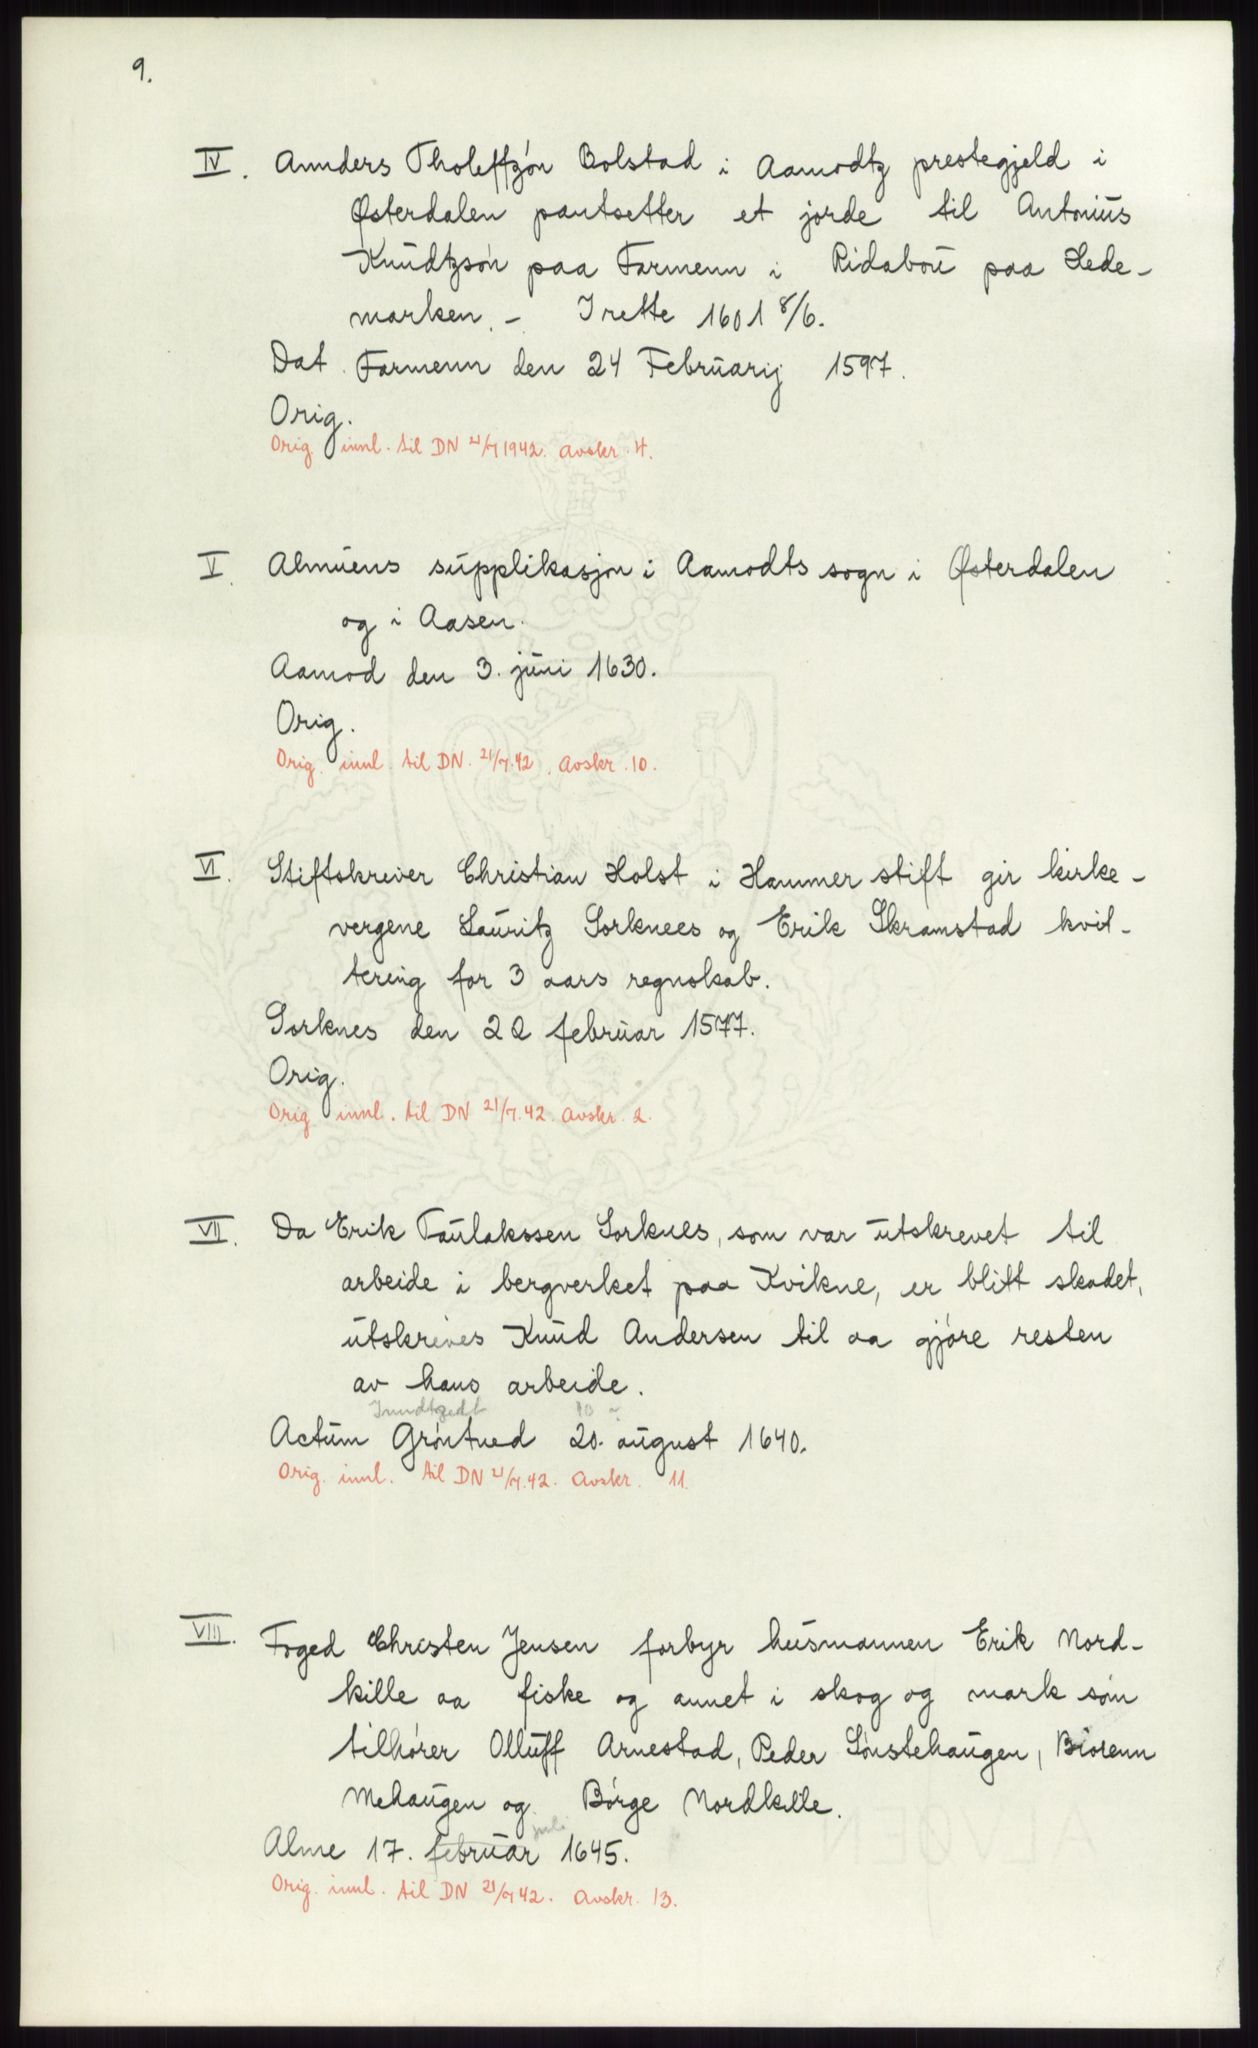 9.
IV. Annders Tholeffzón Bolstad i Aamodtz prestegjeld i
Østerdalen pantsetter et jorde til Antonius
Knudtzsón paa Farmenn i Ridabou paa Hede-
marken. - I rette 1601 8/6.
Dat. Farmenn den 24 Februarij 1597.
Orig.
Orig. innl. til DN 21/7 1942. Avskr. 4.
V. Almuens supplikasjon i Aamodts sogn i Østerdalen
og i Aasen.
Aamod den 3. juni 1630.
Orig.
Orig. innl. til DN. 21/7.42. Avskr. 10.
VI. Stiftskriver Christian Holst i Hammer stift gir kirke-
vergene Lauritz Sorknees og Erik Skramstad kvit-
tering for 3 aars regnskab.
Sorknes den 22 februar 1577.
Orig.
Orig. innl. til DN 21/7.42. Avskr. 2.
VII. Da Erik Taulakssen Sorknes, som var utskrevet til
arbeide i bergverket paa Kvikne, er blitt skadet,
utskrives Knud Andersen til aa gjóre resten
av hans arbeide.
10
Actum Gróntued 20. august 1640.
Orig. innl. til DN 21/7.42. Avskr. 11.
VIII. Foged Christen Jensen forbyr husmannen Erik Nord-
kille aa fiske og annet i skog og mark som
tilhórer Olluff Arnestad, Peder Lónstehaugen, Biórenn
Mehaugen og Bórge Nordkille.
juli
Alme 17. februar 1645.
Orig. innl. til DN 21/7 42. Avskr. 13.